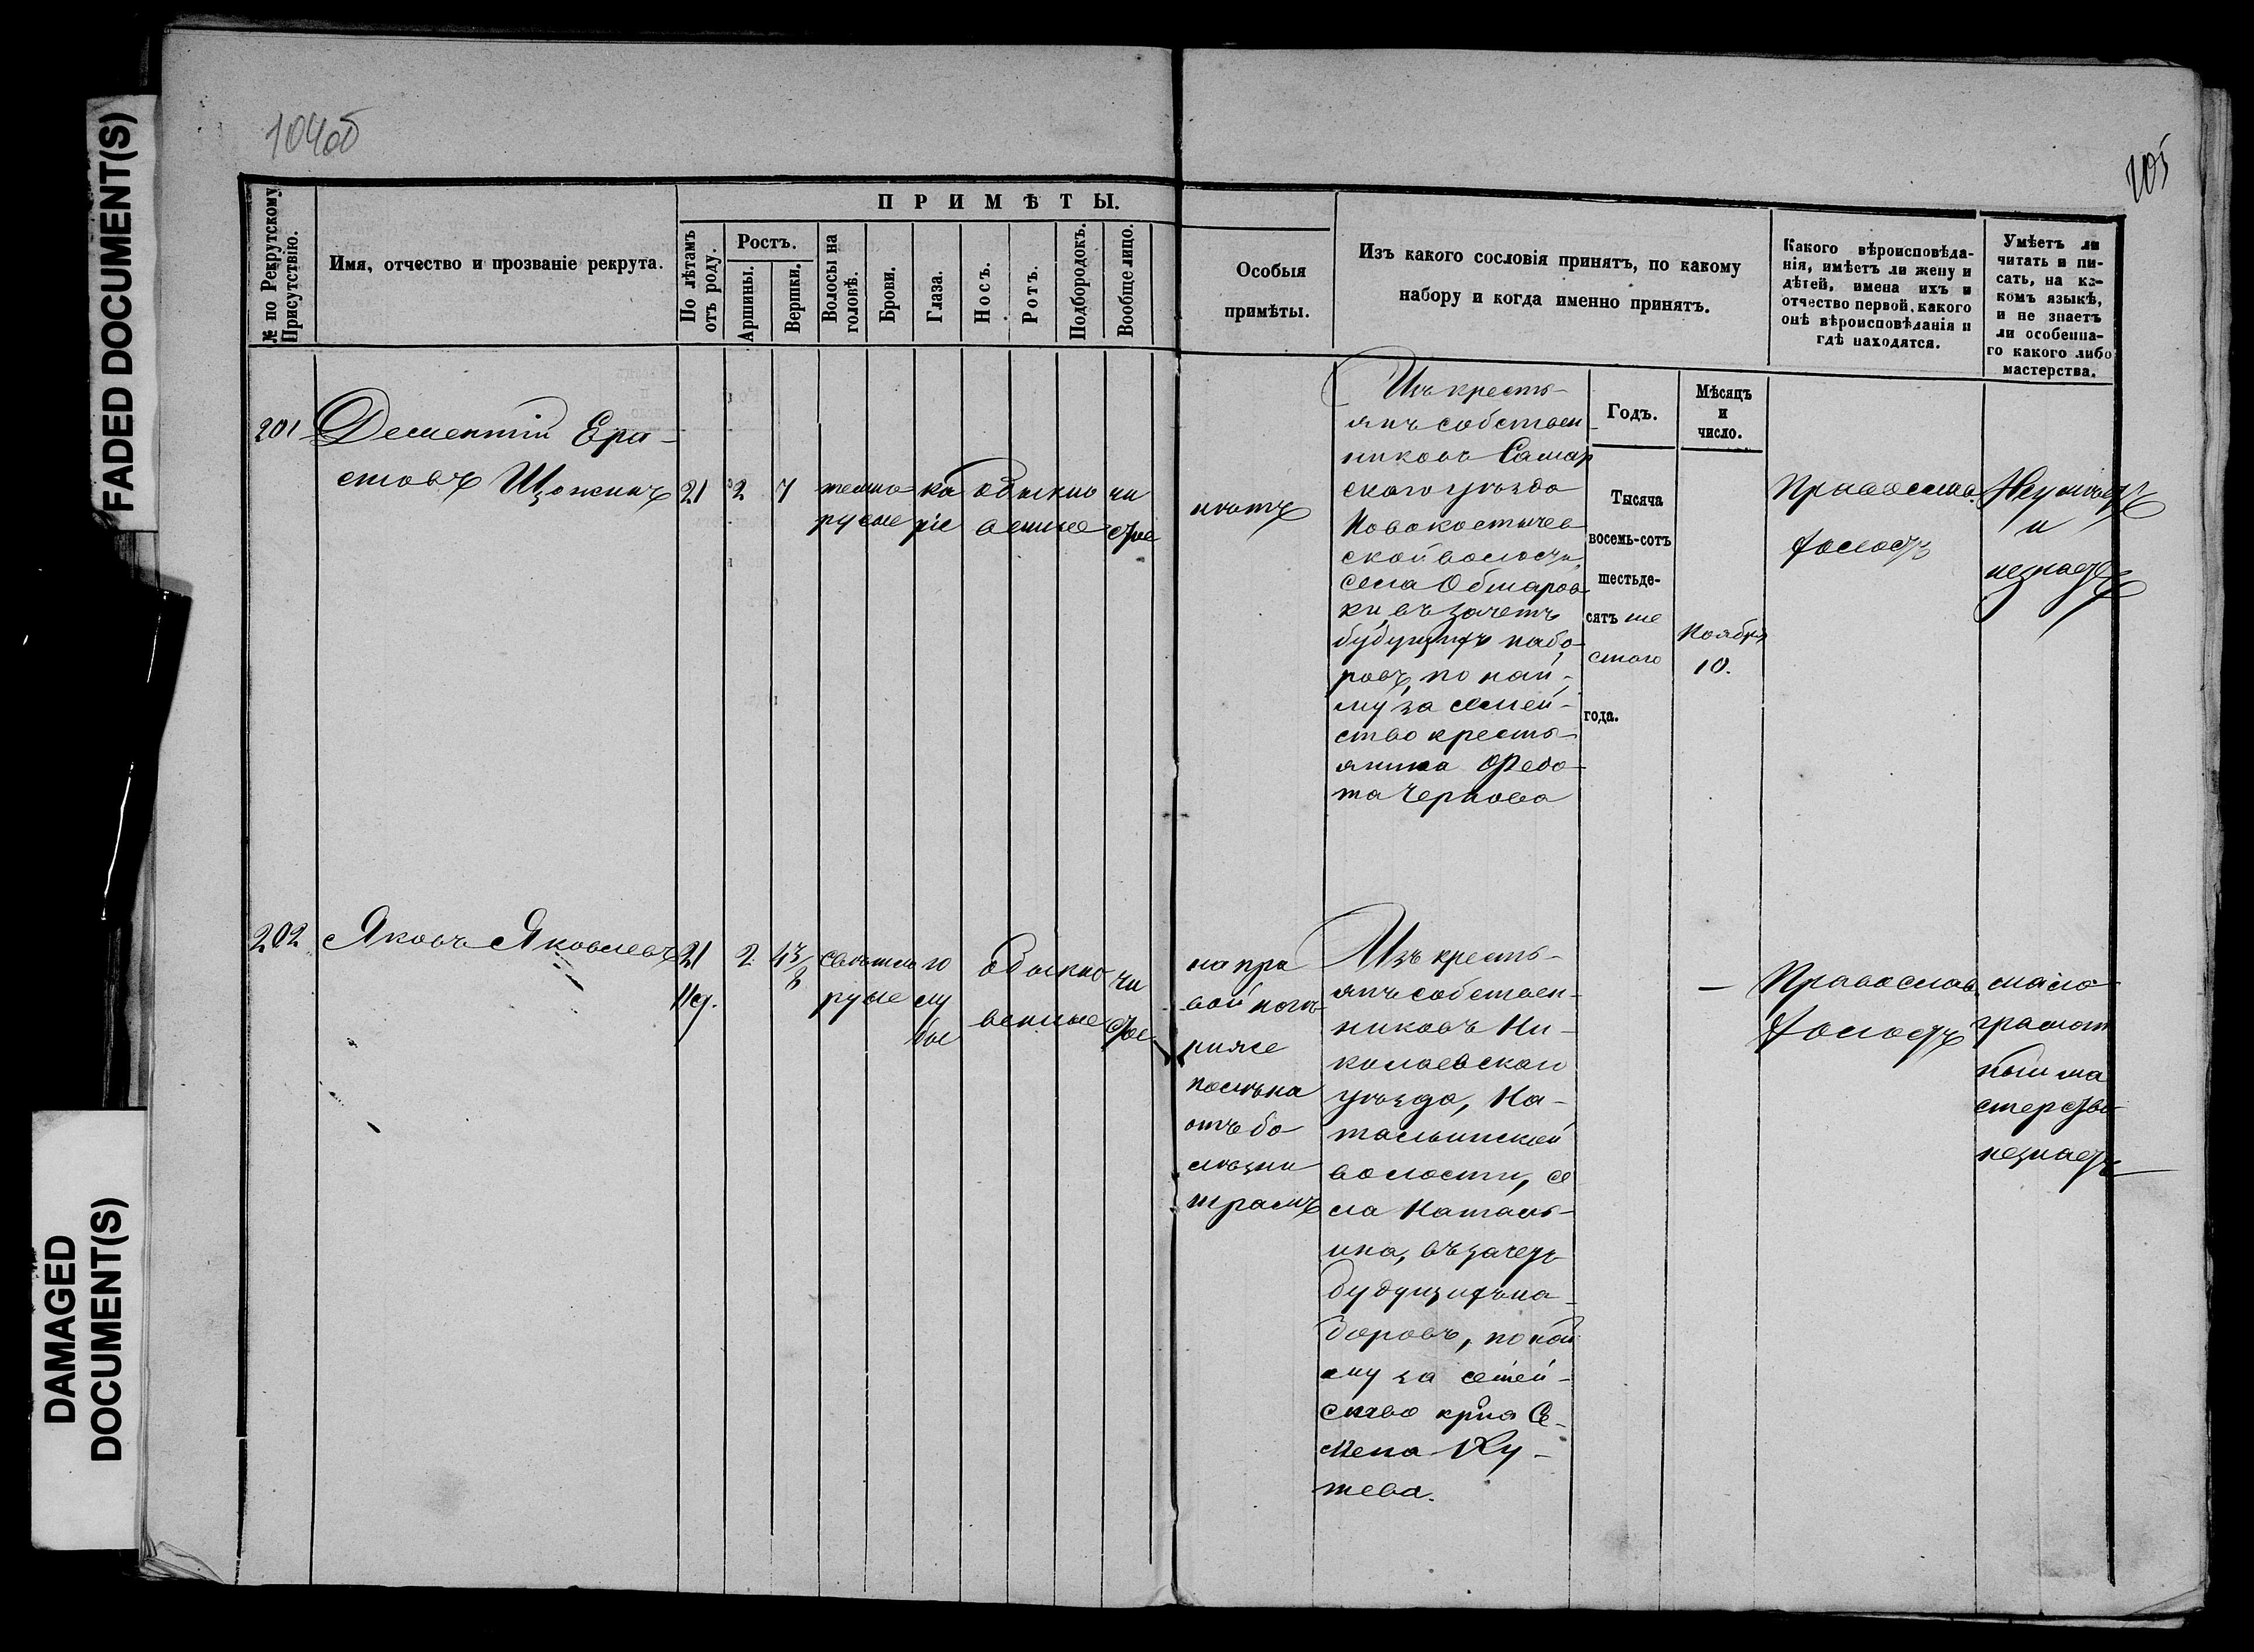 FADED DOCUMENT(S)
DAMAGED
DOCUMENT(S)
104об
105
№ по Рекрутскому
Присутствію.
Имя, отчество и прозваніе рекрута.
ПРИМѢТЫ.
По лѣтамъ
отъ роду.
Ростъ.
Аршины.
Вершки.
Волосы на
головѣ.
Брови.
Глаза.
Носъ.
Ротъ.
Подбородокъ.
Вообще лицо.
Особыя
примѣты.
Изъ какого сословія принятъ, по какому
набору и когда именно принятъ.
Какого вѣроисповѣда-
нія, имѣетъ ли жену и
дѣтей, имена ихъ и
отчество первой, какого
онѣ вѣроисповѣданія и
гдѣ находятся.
Умѣетъ ли
читать и пи-
сать, на ка-
комъ языкѣ,
и не знаетъ
ли особенна-
го какого либо
мастерства.
201
Дементій Ера-
стовъ Щожинъ
21
2
7
темно
русые
ка
ріе
обыкно
венные
чи
стое
нѣтъ
Изъ кресть-
янъ собствен-
никовъ Самар
скаго уѣзда
Новокостычев
ской волости
села Обшаров-
ки, въ зачетъ
будущихъ набо-
ровъ, по най-
му за семей-
ство кресть-
янина Федо-
та Чернова
Годъ.
Тысяча
восемь-сотъ
шестьде-
сятъ ше
стаго
года.
Мѣсяцъ
и
число.
Ноября
10.
Православ.
холостъ
Неумѣетъ
и
незнаетъ
202
Яковъ Яковлевъ
21
2
4 3/8
свѣтло
русые
го
лу
бые
обыкно
венные
чи
стое
на пра
вой ногѣ
ниже
колѣна
отъ бо
лѣзни
шрамъ
Изъ кресть-
янъ собствен-
никовъ Ни-
колаевскаго
уѣзда, На-
тальинской
волости, се
ла Наталь-
ина, въ зачетъ
будущихъ на-
боровъ, по най
му за семей-
ство кр-на Се-
мена Ку-
тева.
Православ.
холостъ
мало
грамот
ный ма
стерства
незнаетъ